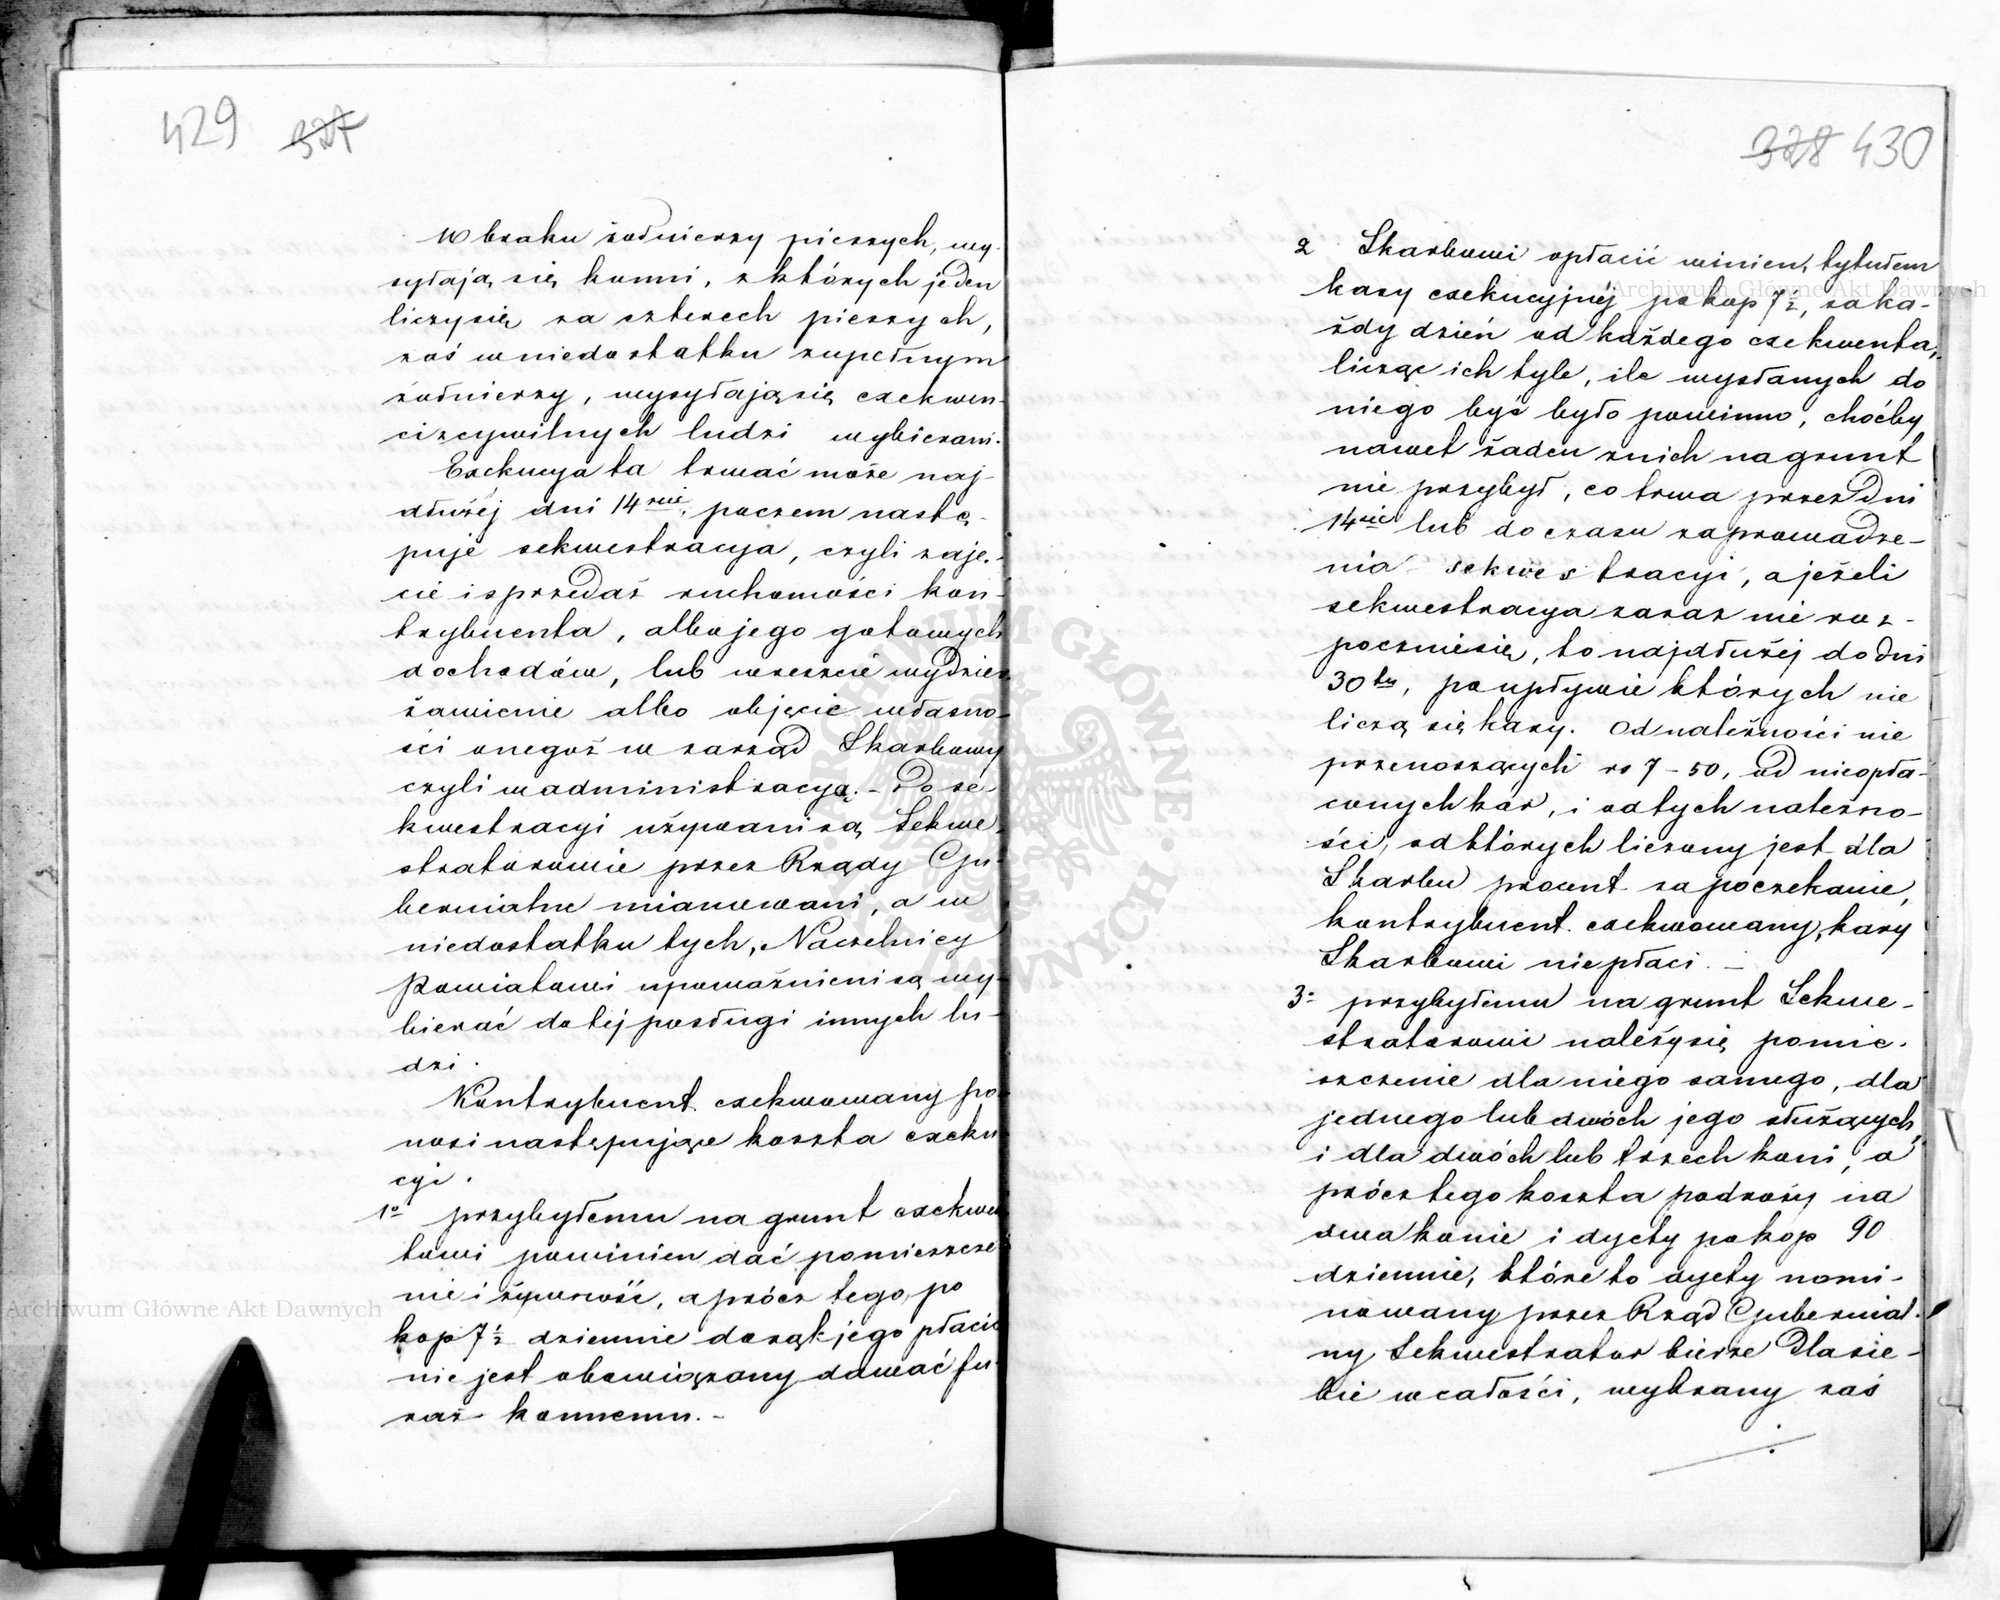 429 327
W braku żołnierzy pieszych, wy-
syłają się konni, z których jeden
liczy się za czterech pieszych,
zaś w niedostatku zupełnym
żołnierzy, wysyłają się exekwen-
ci z cywilnych ludzi wybierani.
Exekucya ta trwać może naj-
dłużéj dni 14ście, poczem nastę-
puje sekwestracya, czyli zaję-
cie i sprzedaż ruchomości kon-
trybuenta, albo jego gotowych
dochodów, lub wreszcie wydzier-
żawienie albo objęcie własno-
ści onegoż w zarząd Skarbowy
czyli w administracyą. - Do se-
kwestracyi używani są Sekwe-
stratorowie przez Rządy Gu-
bernialne mianowani, a w
niedostatku tych, Naczelnicy
Powiatowi upoważnieni są wy-
bierać do téj posługi innych lu-
dzi.
Kontrybuent exekwowany po-
nosi następujące koszta exeku
cyi.
1º przybyłemu na grunt exekwen
towi powinien dać pomieszcze-
nie i żywność, a prócz tego, po
kop 7½ dziennie do rąk jego płacić
nie jest obowiązany dawać fu-
raż konnemu. -
328 430
2 Skarbowi opłacić winien, tytułem
kary exekucyjnéj po kop 7½, za ka-
żdy dzień od każdego exekwenta,
licząc ich tyle, ile wysłanych do
niego być było powinno, choćby
nawet żaden z nich na grunt
nie przybył, co trwa przez dni
14ście lub do czasu zaprowadze-
nia sekwestracyi, a jeżeli
sekwestracya zaraz nie roz-
pocznie się, to najdłużéj do dni
30tu, po upływie których nie
liczą się kary. Od należności nie
przenoszących rs 7-50, od nieopła-
conych kar, i od tych należno-
ści, od których liczony jest dla
Skarbu procent za poczekanie,
kontrybuent exekwowany, kary
Skarbowi nie płaci. -
3º przybyłemu na grunt Sekwe-
stratorowi należy się pomie-
szczenie dla niego samego, dla
jednego lub dwóch jego służących,
i dla dwóch lub trzech koni, a
prócz tego koszta podróży na
dwa konie i dyety po kop 90
dziennie, które to dyety nomi-
nowany przez Rząd Gubernial-
ny Sekwestrator bierze dla sie-
bie w całości, wybrany zaś
Archiwum Główne Akt Dawnych
Archiwum Główne Akt Dawnych
ARCHIWUM GŁÓWNE AKT DAWNYCH